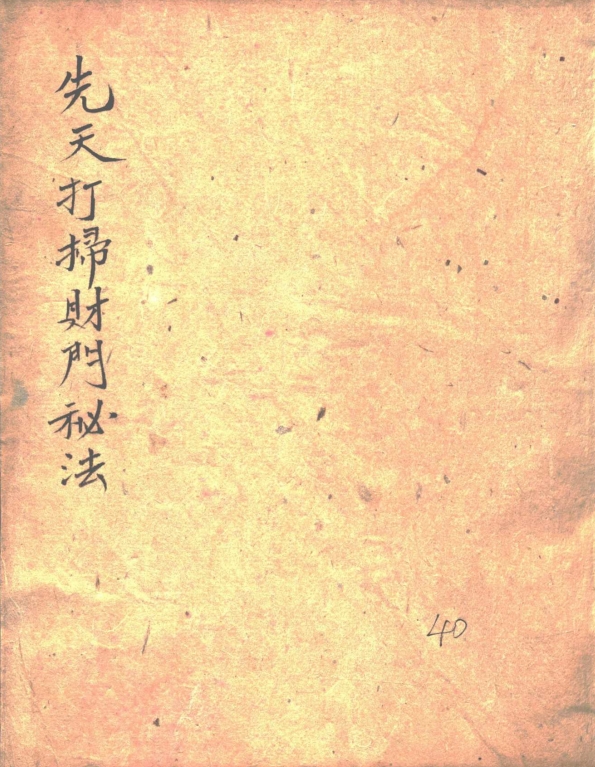 先天打掃財門秘法
40